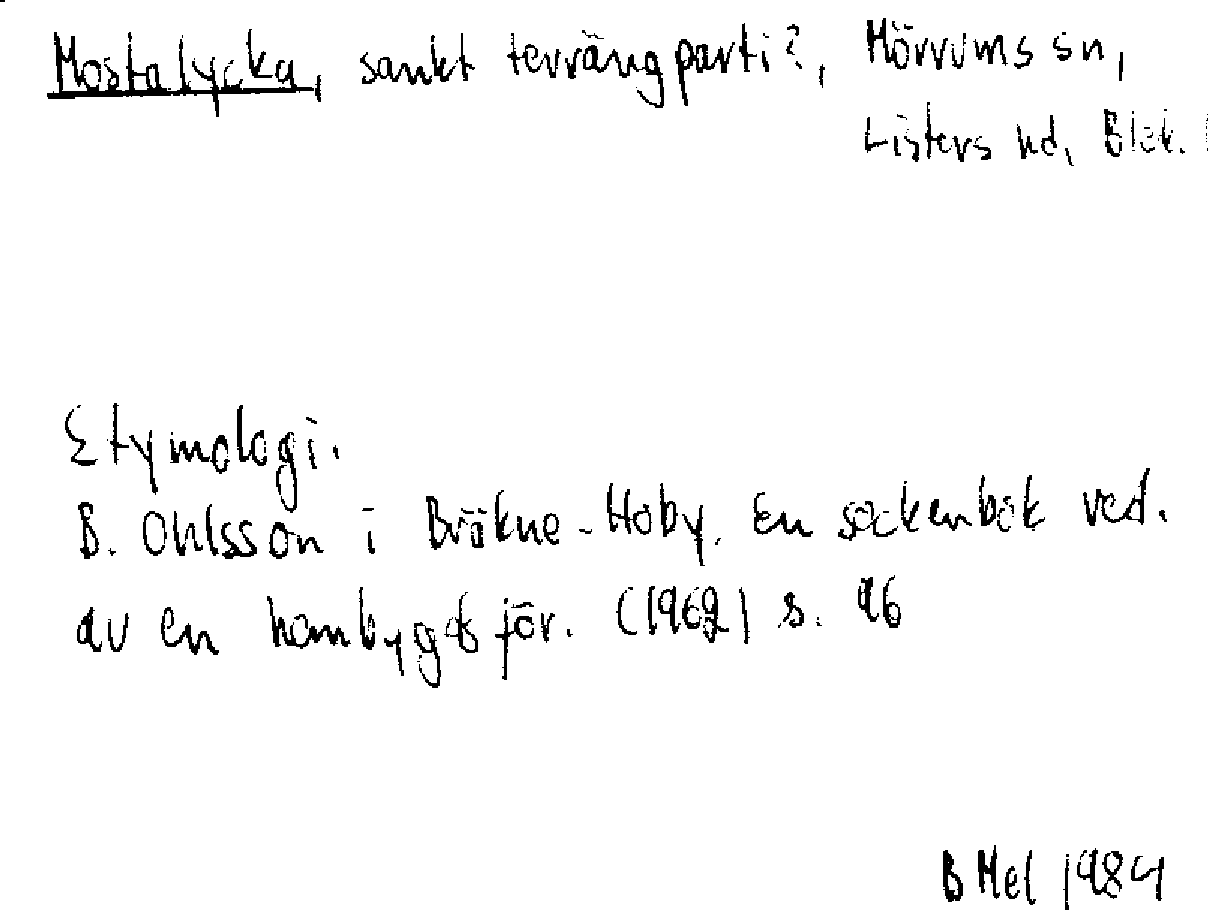 Mostalycka, sankt terrängparti?, Mörrums sn,
Listers hd, Blek. l
Etymologi.
B. Ohlsson i Bräkne-Hoby. En sockenbok red.
av en hembygdsför. (1962) s. 96
B Mel 1984